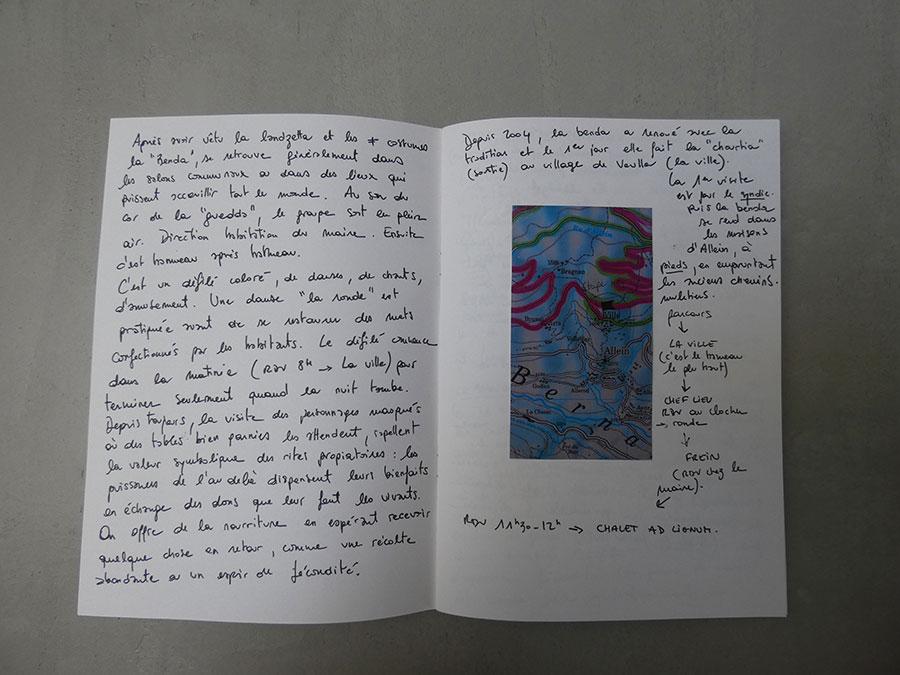 Après avoir vêtu la landzetta et les * costumes
la "Benda", se retrouve généralement dans
les salons communaux ou dans des lieux qui
puissent accueillir tout le monde. Au son du
cor de la "guedda", le groupe sort en plein
air. Direction habitation du maire. Ensuite
c'est hameau après hameau.
C'est un défilé coloré, de danses, de chants,
d'amusement. Une danse "la ronde" est
pratiquée avant de se restaurer des mets
confectionnés par les habitants. Le défilé commence
dans la matinée (RDV 8H → La ville) pour
terminer seulement quand la nuit tombe.
Depuis toujours, la visite des personnages masqués
où des tables bien garnies les attendent, rappellent
la valeur symbolique des rites propiatoires : les
puissances de l'au delà dispensent leurs bienfaits
en échange des dons que leur font les vivants.
On offre de la nourriture en espérant recevoir
quelque chose en retour, comme une récolte
abondante ou un espoir de fécondité.
Depuis 2004, la benda a renoué avec la
tradition et le 1er jour elle fait la "chourtia"
(sortie) au village de Veulla (la ville).
La 1er visite
est par le syndic.
puis la benda
se rend dans
les maisons
d'Allein, à
pieds, en empruntant
les anciens chemins
muletiers.
parcours
↓
LA VILLE
(c'est le hameau
le plus haut)
↓
CHEF LIEU
RDV au clocher
→ ronde
↓
FREIN
(RDV chez le
maire).
Allein
B e r n a
RDV 11h30-12h → CHALET AD LIGNUM.